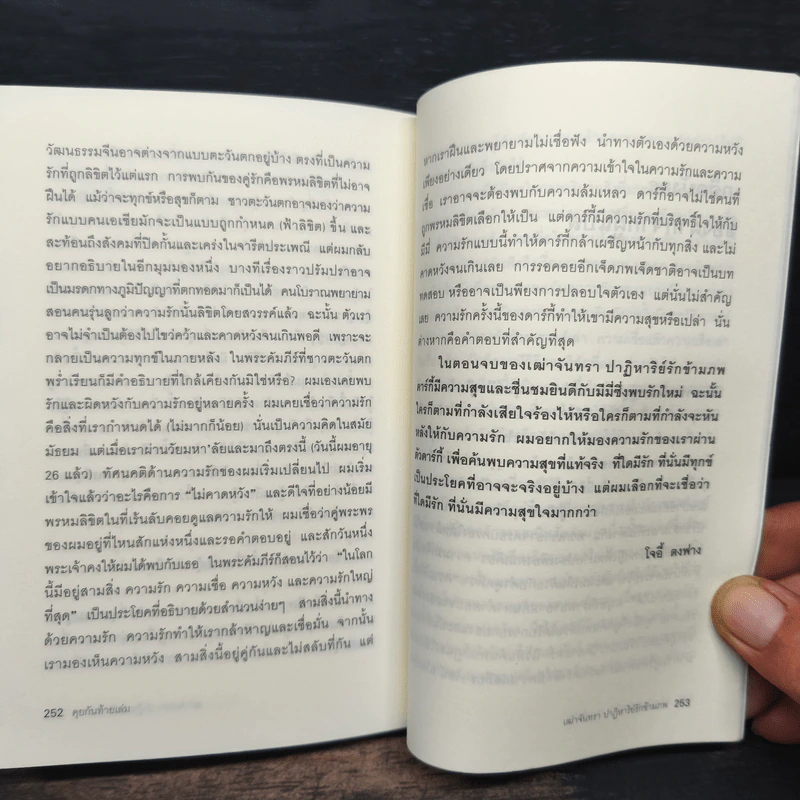 วัฒนธรรมจีนอาจต่างจากแบบตะวันตกอยู่บ้าง ตรงที่เป็นความ
รักที่ถูกลิขิตไว้แต่แรก การพบกันของคู่รักคือพรหมลิขิตที่ไม่อาจ
ฝืนได้ แม้ว่าจะทุกข์หรือสุขก็ตาม ชาวตะวันตกอาจมองว่าความ
รักแบบคนเอเชียมักจะเป็นแบบถูกกำหนด (ฟ้าลิขิต) ขึ้น และ
สะท้อนถึงสังคมที่ปิดกั้นและเคร่งในจารีตประเพณี แต่ผมกลับ
อยากอธิบายในอีกมุมมองหนึ่ง บางทีเรื่องราวปรัมปราอาจ
เป็นมรดกทางภูมิปัญญาที่ตกทอดมาก็เป็นได้ คนโบราณพยายาม
สอนคนรุ่นลูกว่าความรักนั้นลิขิตโดยสวรรค์แล้ว ฉะนั้น ตัวเรา
อาจไม่จำเป็นต้องไปไขว่คว้าและคาดหวังจนเกินพอดี เพราะจะ
กลายเป็นความทุกข์ในภายหลัง ในพระคัมภีร์ที่ชาวตะวันตก
พร่ำเรียนก็มีคำอธิบายที่ใกล้เคียงกันมิใช่หรือ? ผมเองเคยพบ
รักและผิดหวังกับความรักอยู่หลายครั้ง ผมเคยเชื่อว่าความรัก
คือสิ่งที่เรากำหนดได้ (ไม่มากก็น้อย) นั่นเป็นความคิดในสมัย
มัธยม แต่เมื่อเราผ่านวัยมหา'ลัยและมาถึงตรงนี้ (วันนี้ผมอายุ
26 แล้ว) ทัศนคติด้านความรักของผมเริ่มเปลี่ยนไป ผมเริ่ม
เข้าใจแล้วว่าอะไรคือการ “ไม่คาดหวัง” และดีใจที่อย่างน้อยมี
พรหมลิขิตในที่เร้นลับคอยดูแลความรักให้ ผมเชื่อว่าคู่พระพร
ของผมอยู่ที่ไหนสักแห่งหนึ่งและรอคำตอบอยู่ และสักวันหนึ่ง
พระเจ้าคงให้ผมได้พบกับเธอ ในพระคัมภีร์ก็สอนไว้ว่า “ในโลก
นี้มีอยู่สามสิ่ง ความรัก ความเชื่อ ความหวัง และความรักใหญ่
ที่สุด” เป็นประโยคที่อธิบายด้วยสำนวนง่ายๆ สามสิ่งนี้นำทาง
ด้วยความรัก ความรักทำให้เรากล้าหาญและเชื่อมั่น จากนั้น
เรามองเห็นความหวัง สามสิ่งนี้อยู่คู่กันและไม่สลับที่กัน แต่
252 คุยกันท้ายเล่ม
หากเราฝืนและพยายามไม่เชื่อฟัง นำทางตัวเองด้วยความหวัง
เพียงอย่างเดียว โดยปราศจากความเข้าใจในความรักและความ
เชื่อ เราอาจจะต้องพบกับความล้มเหลว ดาร์กี้อาจไม่ใช่คนที่
ถูกพรหมลิขิตเลือกให้เป็น แต่ดาร์กี้มีความรักที่บริสุทธิ์ใจให้กับ
มีมี่ ความรักแบบนี้ทำให้ดาร์กี้กล้าเผชิญหน้ากับทุกสิ่ง และไม่
คาดหวังจนเกินเลย การรอคอยอีกเจ็ดภพเจ็ดชาติอาจเป็นบท
ทดสอบ หรืออาจเป็นพียงการปลอบใจตัวเอง แต่นั่นไม่สำคัญ
เลย ความรักครั้งนี้ของดาร์กี้ทำให้เขามีความสุขหรือเปล่า นั่น
ต่างหากคือคำตอบที่สำคัญที่สุด
ในตอนจบของเฒ่าจันทรา ปาฏิหาริย์รักข้ามภพ
ดาร์กี้มีความสุขและชื่นชมยินดีกับมีมี่ซึ่งพบรักใหม่ ฉะนั้น
ใครก็ตามที่กำลังเสียใจร้องไห้หรือใครก็ตามที่กำลังจะหัน
หลังให้กับความรัก ผมอยากให้มองความรักของเราผ่าน
ตัวดาร์กี้ เพื่อค้นพบความสุขที่แท้จริง ที่ใดมีรัก ที่นั่นมีทุกข์
เป็นประโยคที่อาจจะจริงอยู่บ้าง แต่ผมเลือกที่จะเชื่อว่า
ที่ใดมีรัก ที่นั่นมีความสุขใจมากกว่า
โจอี้ ตงฟาง
เฒ่าจันทรา ปาฏิหาริย์รักข้ามภพ 253